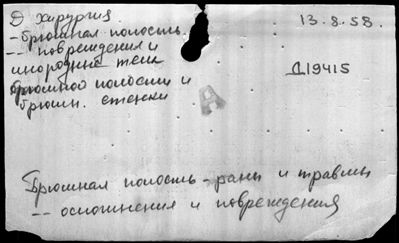 Д Хирургия 13.8.58.
- брюшная полость.
-- повреждения и
инородные тела Д19415
брюшной полости и
брюшн. стенки
А
Брюшная полость - раны и травмы
-- осложнения и повреждения